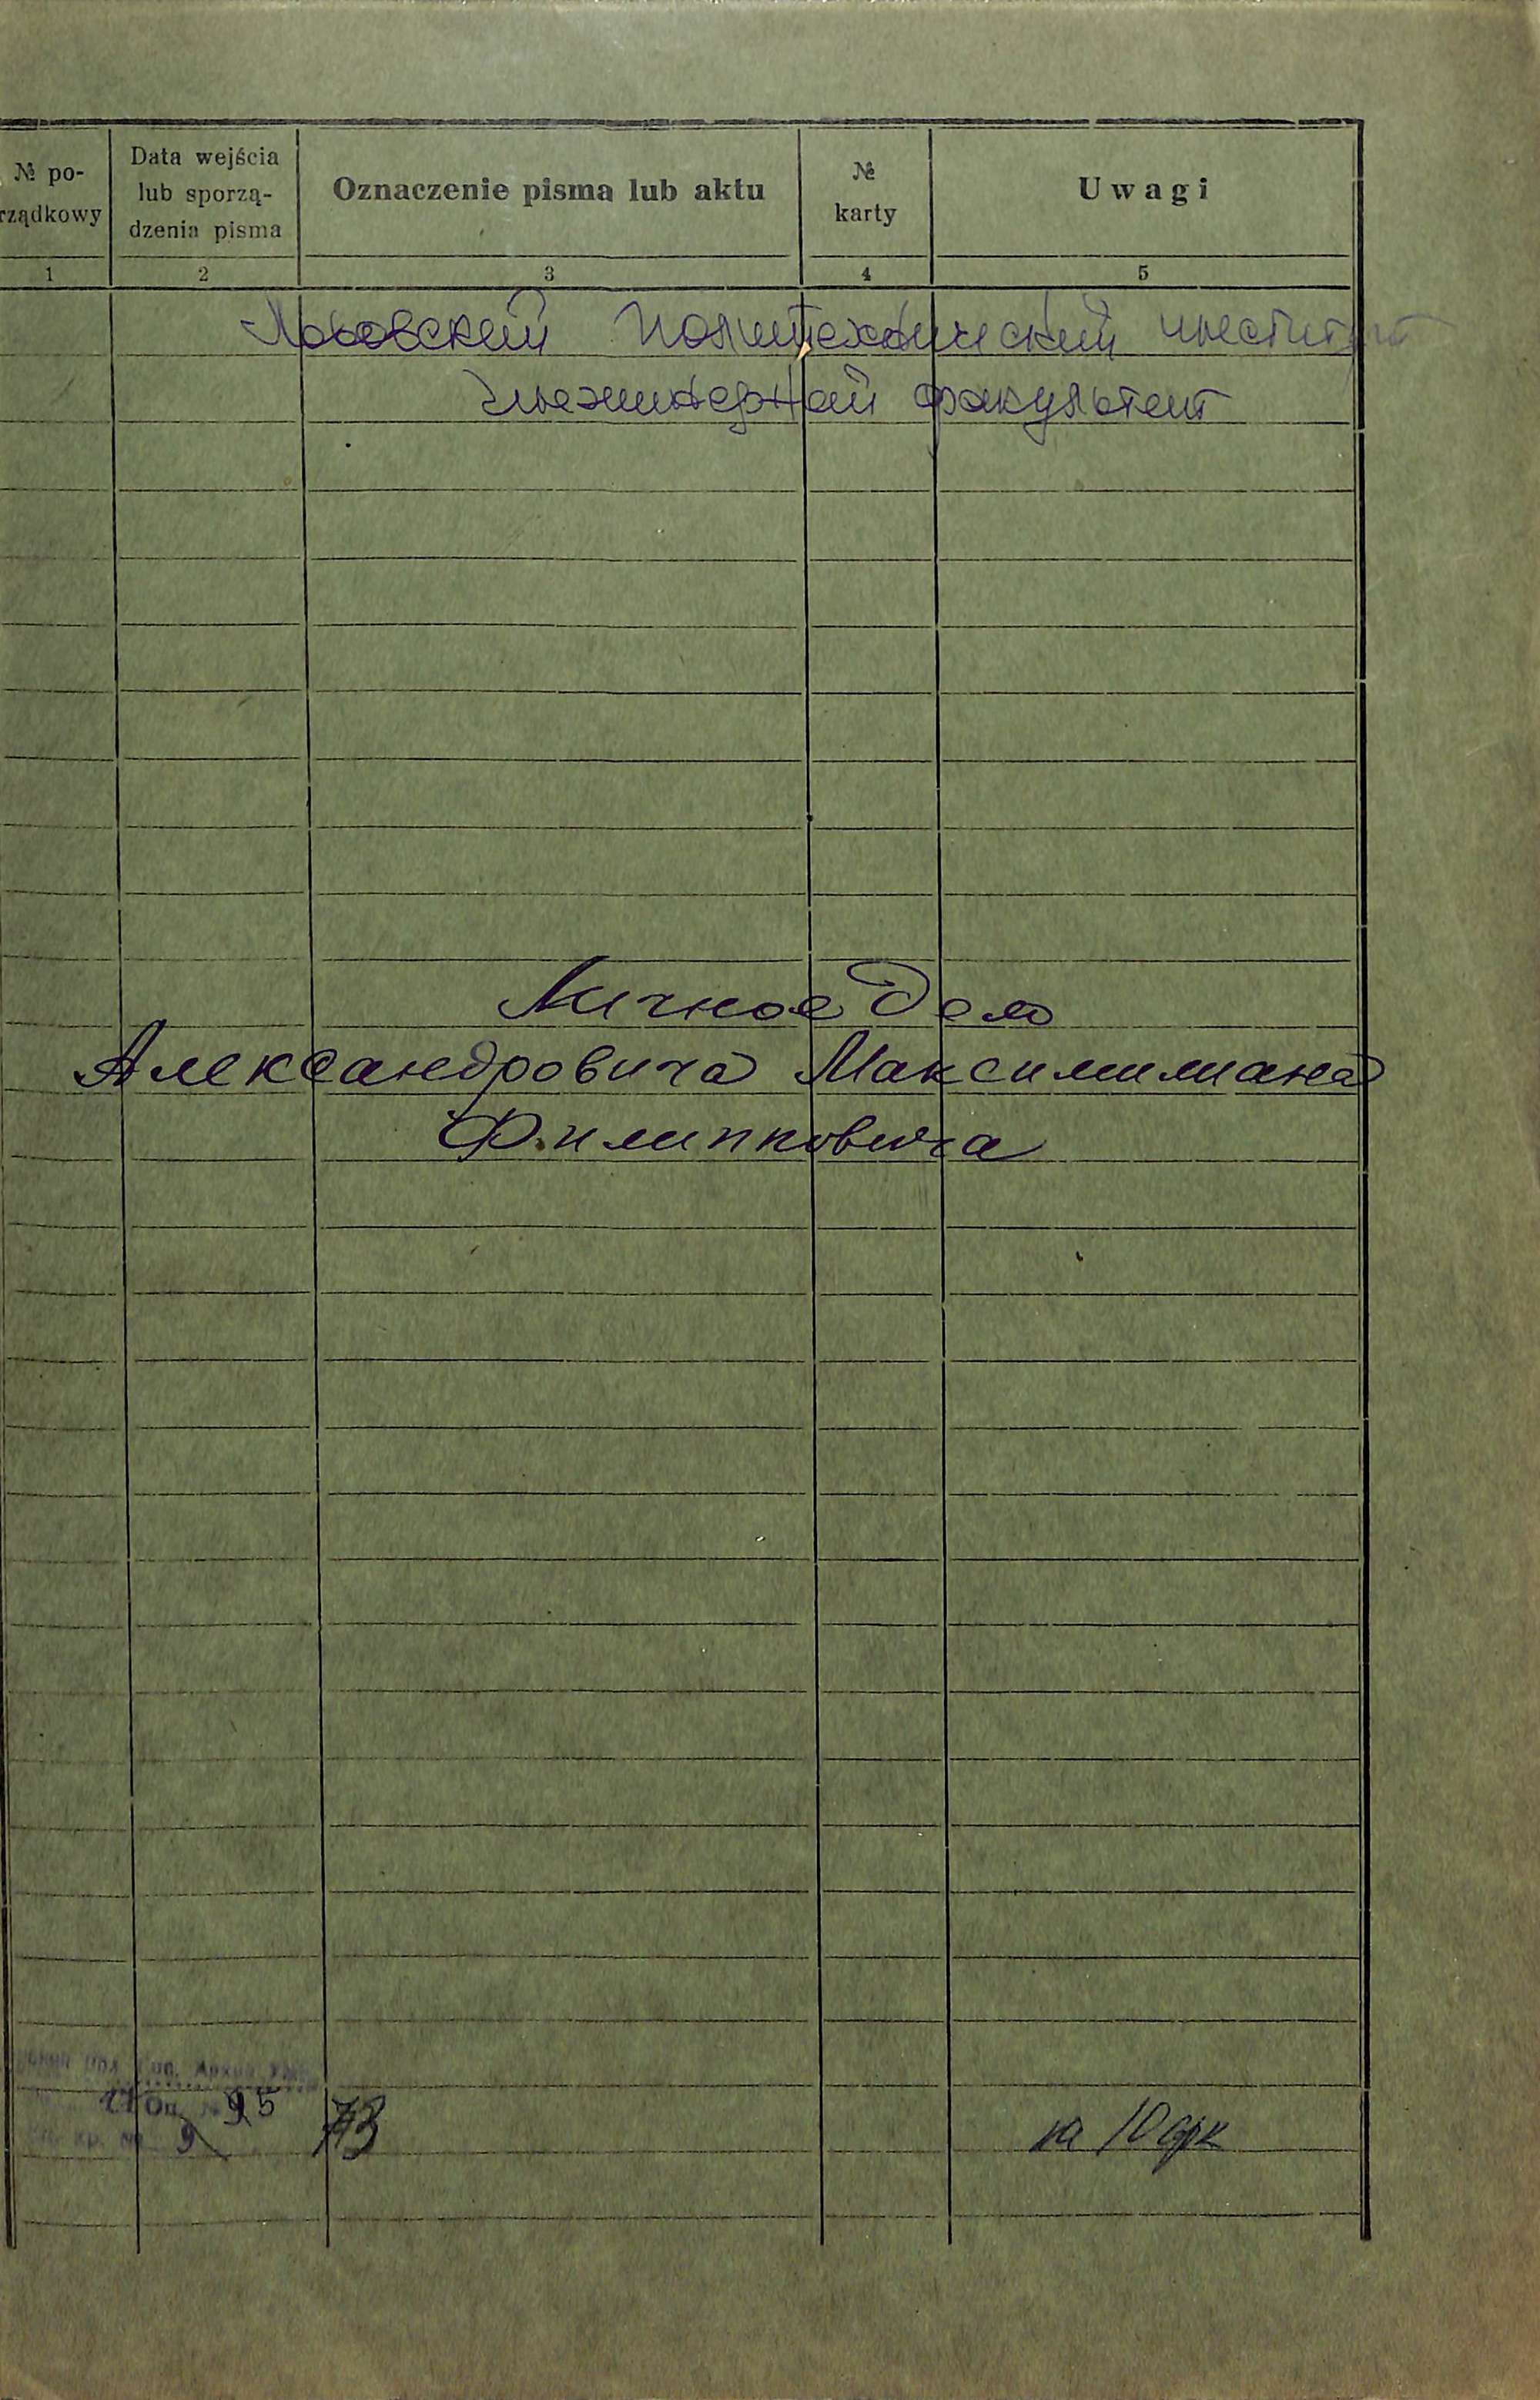 № po-
rządkowy
Data wejścia
lub sporzą-
dzenia pisma
Oznaczenie pisma lub aktu
№
karty
Uwagi
1 2 3 4 5
Львовский Политехнический институт
Инженерный факультет
Личное дело
Александровича Максимилиана
Филипповича
Оп. 95
9
73
на 10 арк